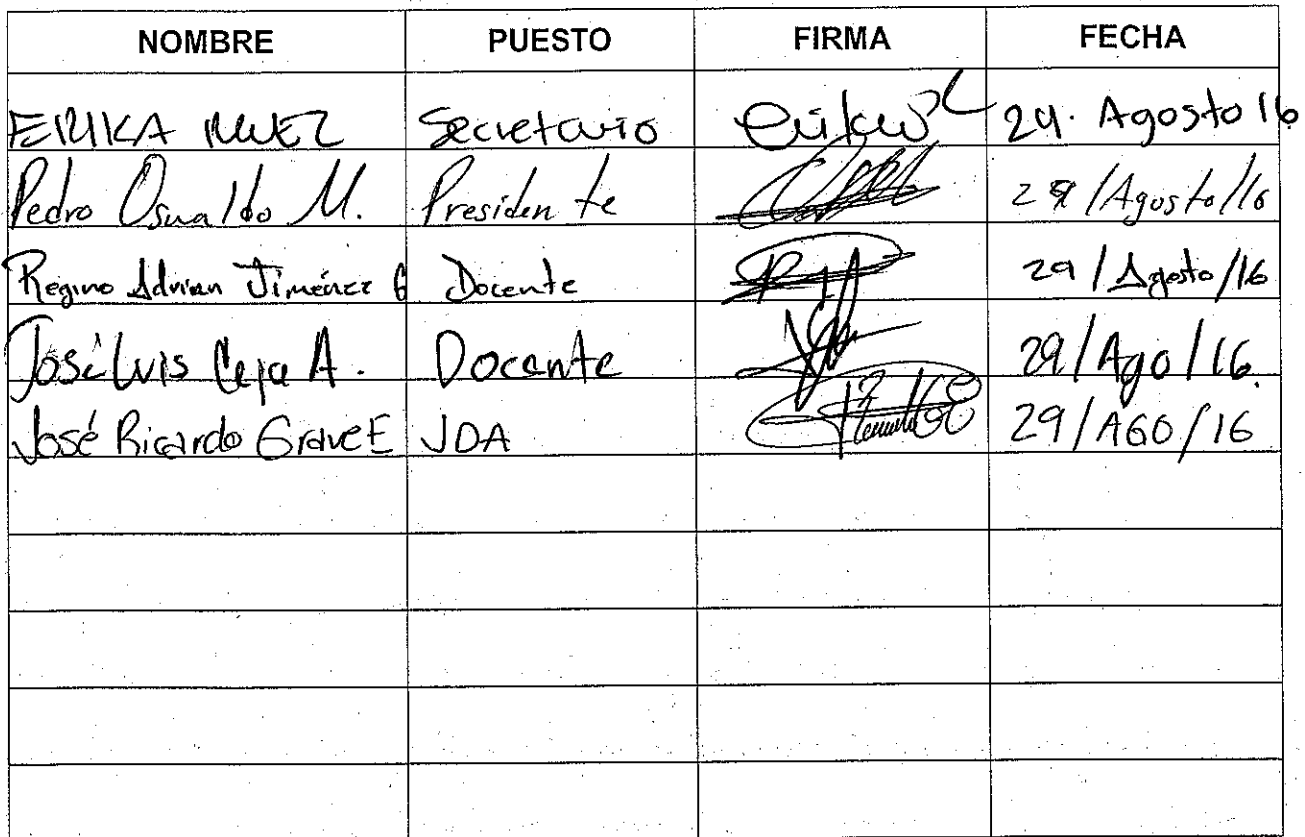 NOMBRE PUESTO FIRMA FECHA
ERIKA Secretario 29. Agosto 16
Pedro Osualdo M. Presidente /Agosto/16
Regino Adrian Jiménez G Docente 29/Agosto/16
José Luis Ceja A. Docente 29/Ago/16.
José Ricardo Grave E JDA 29/AGO/16